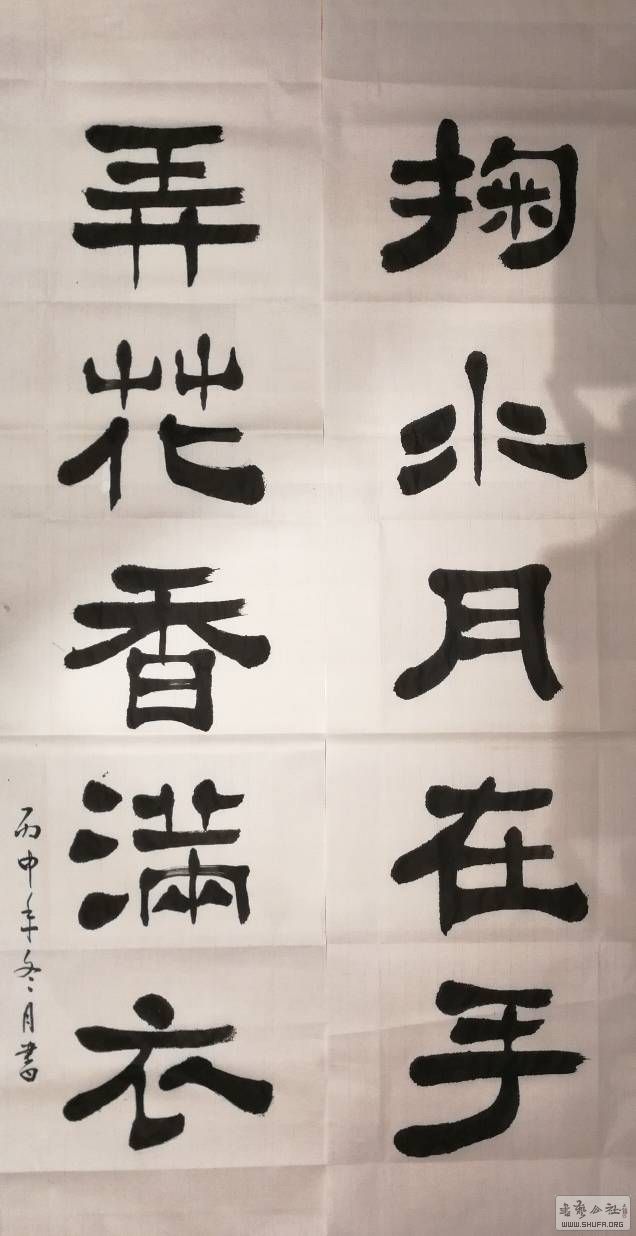 掬水月在手
弄花香满衣
丙申年冬月書
书艺公社
WWW.SHUFA.ORG